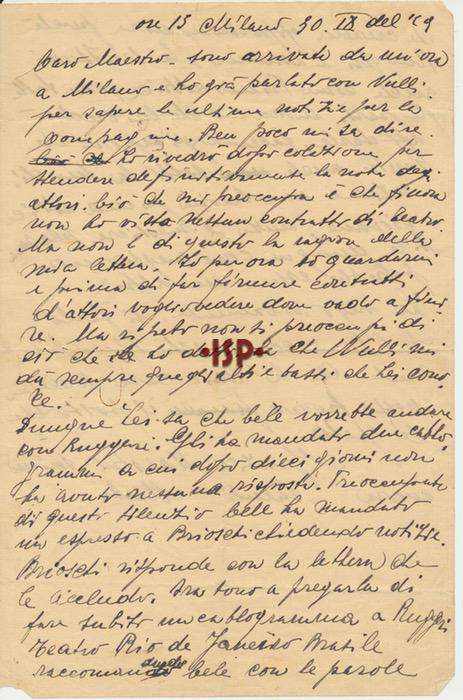 ore 13 Milano 30. IX del '29
Caro Maestro - sono arrivato da un'ora
a Milano e ho già parlato con Nulli
per sapere le ultime notizie per la
Compagnia. Ben poco mi sa dire.
Lo rivedrò dopo colazione per
stendere definitivamente la nota degli
attori. Ciò che mi preoccupa è che finora
non ho visto nessun contratto di teatro.
Ma non è di questo la ragione della
mia lettera. Io per ora so guardarmi
e prima di far firmare contratti
d'attori voglio vedere dove vado a fini
re. Ma ripeto non si preoccupi di
ciò che le ho che Nulli mi
dà sempre quegli alti e bassi che Lei cono
sce.
Dunque Lei sa che Bele vorrebbe andare
con Ruggeri. Gli ha mandato due cablo
grammi a cui dopo dieci giorni non
ha avuto nessuna risposta. Preoccupante
di questo silenzio Bele ha mandato
un espresso a Brioschi chiedendo notizie.
Brioschi risponde con la lettera che
le accludo. Ora sono a pregarla di
fare subito un cablogramma a Ruggeri
Teatro Rio de Janeiro Brasile
raccomandando Bele con le parole
ISP